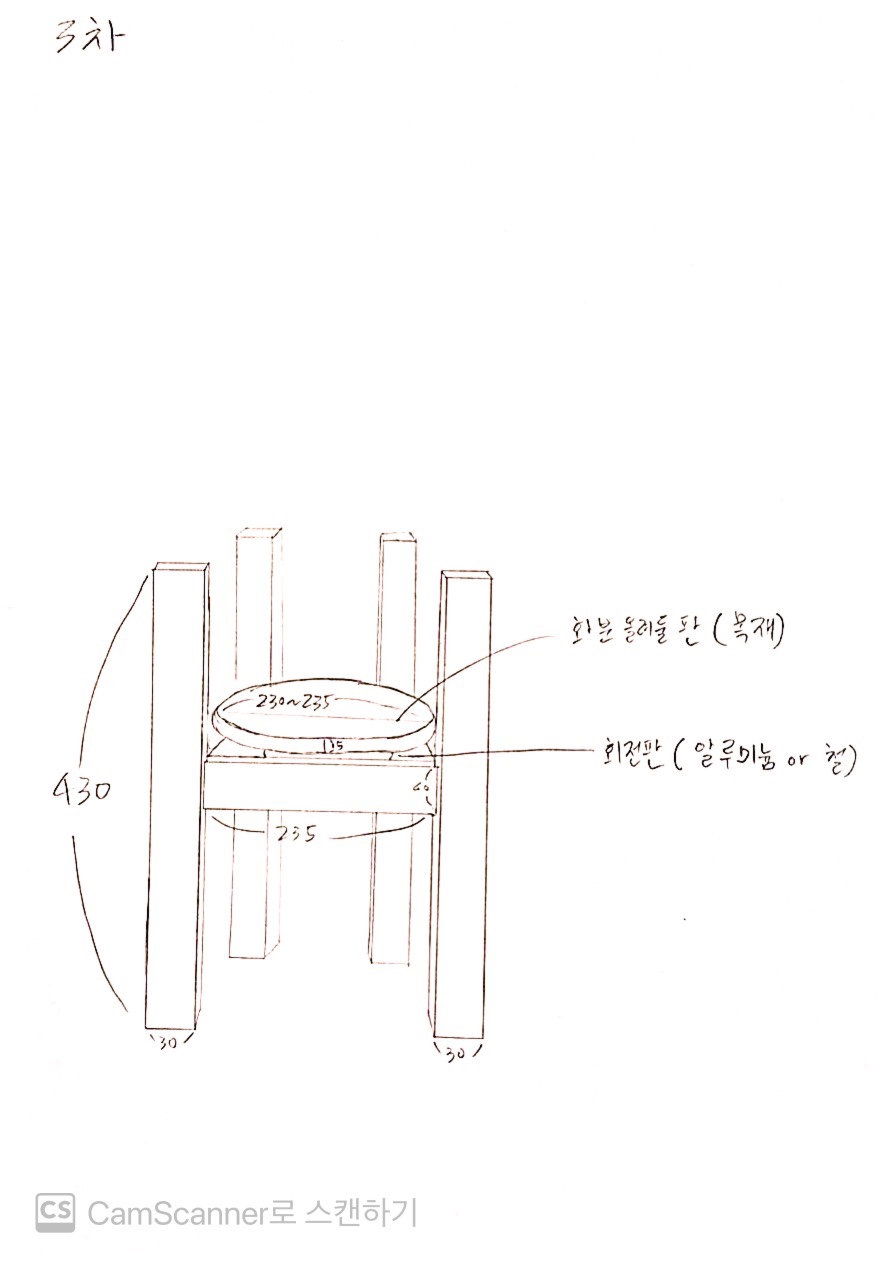 3차
화분 올려둘 판 (목재)
230~235
115
회전판 (알루미늄 or 철)
40
430
235
30
30
CS CamScanner로 스캔하기